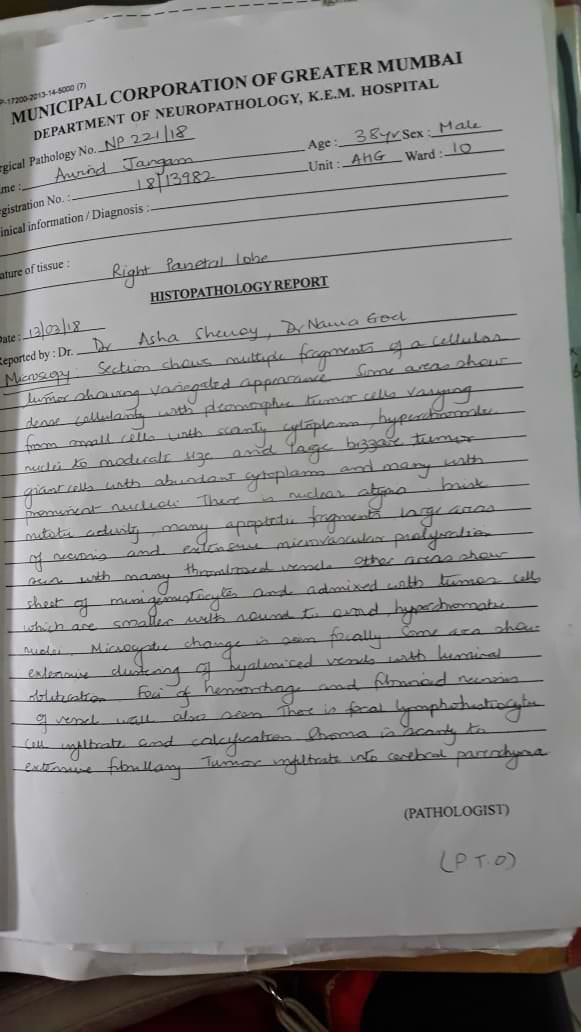 P-17200-2013-14-5000 (7)
MUNICIPAL CORPORATION OF GREATER MUMBAI
DEPARTMENT OF NEUROPATHOLOGY, K.E.M. HOSPITAL
rgical Pathology No. NP 221/18
me : Arvind Jangam Age : 38yr Sex : Male
gistration No. : 18/13982 Unit : AHG Ward : 10
inical information / Diagnosis :
ature of tissue : Right Parietal lobe
HISTOPATHOLOGY REPORT
Date : 13/03/18
Reported by : Dr. Dr Asha Shenoy, Dr Naina Goel
Microscopy: Section shows multiple fragments of a cellular
tumor showing variegated appearance Some areas show
dense cellularity with pleomorphic tumor cells varying
from small cells with scanty cytoplasm, hyperchromatic
nuclei to moderate size and large bizzare tumor
giant cells with abundant cytoplasm and many with
prominent nucleoli There is nuclear atypia brisk
mitotic activity, many apoptotic fragments large areas
of necrosis and extensive microvascular proliferation
seen with many thrombosed vessels other areas show
sheet of minigemistocytes and admixed with tumor cells
which are smaller with round to ovoid hyperchromatic
nuclei. Microcystic change is seen focally. Some area show
extensive clustering of hyalinised vessels with luminal
obliteration Foci of hemorrhage and fibrinoid necrosis
of vessel wall also seen There is focal lymphohistiocytic
cell infiltrate and calcification Stroma is scanty to
extensive fibrillary Tumor infiltrate into cerebral parenchyma
(PATHOLOGIST)
(P T.O)